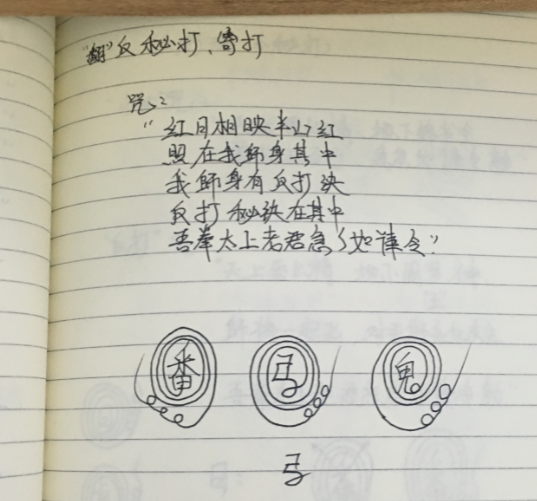 "翻"反秘打、寄打
咒:
"红日相映半山红
照在我师身其中
我师身有反打诀
反打秘诀在其中
吾奉太上老君急々如律令"
番 弓 鬼
弓